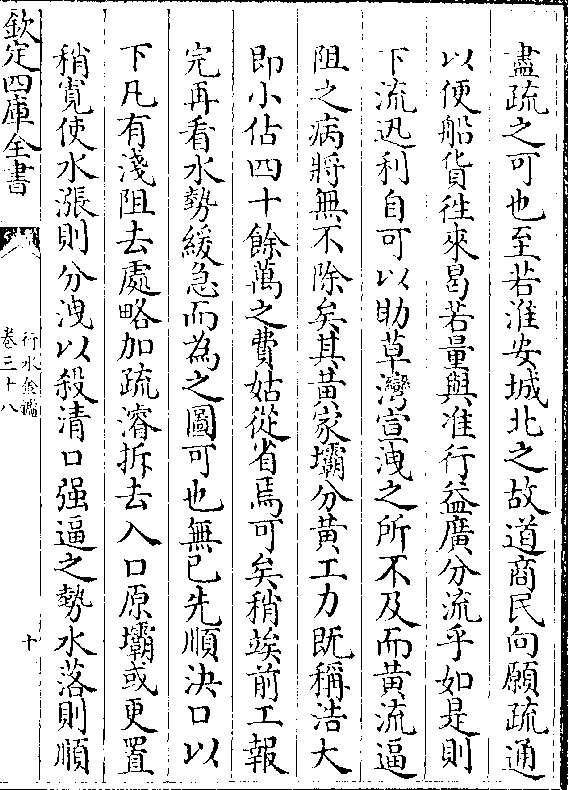 盡疏之可也至若淮安城北之故道商民向願疏通
以便船貨徃來曷若量與准行益廣分流乎如是則
下流迅利自可以助草灣宣洩之所不及而黄流逼
阻之病將無不除矣其黄家壩分黄工力既稱浩大
即小估四十餘萬之費姑從省焉可矣稍竢前工報
完再看水勢緩急而為之圖可也無已先順決口以
下凡有淺阻去處略加疏濬拆去入口原壩或更置
稍寛使水漲則分洩以殺清口强逼之勢水落則順
欽定四庫全書
行水金鑑
卷三十八
十